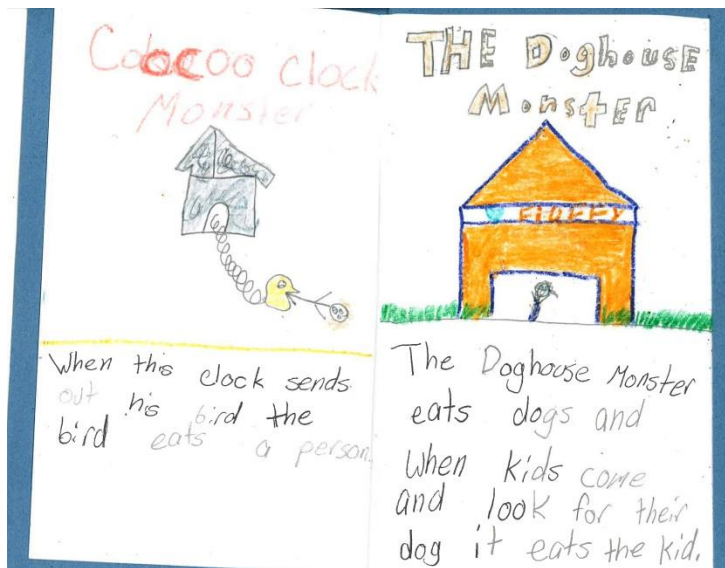 Cococoo Clock
Monster
When this clock sends
out his bird the
bird eats a person.
THE Doghouse
Monster
FLOPPY
The Doghouse Monster
eats dogs and
When kids come
and look for their
dog it eats the kid.